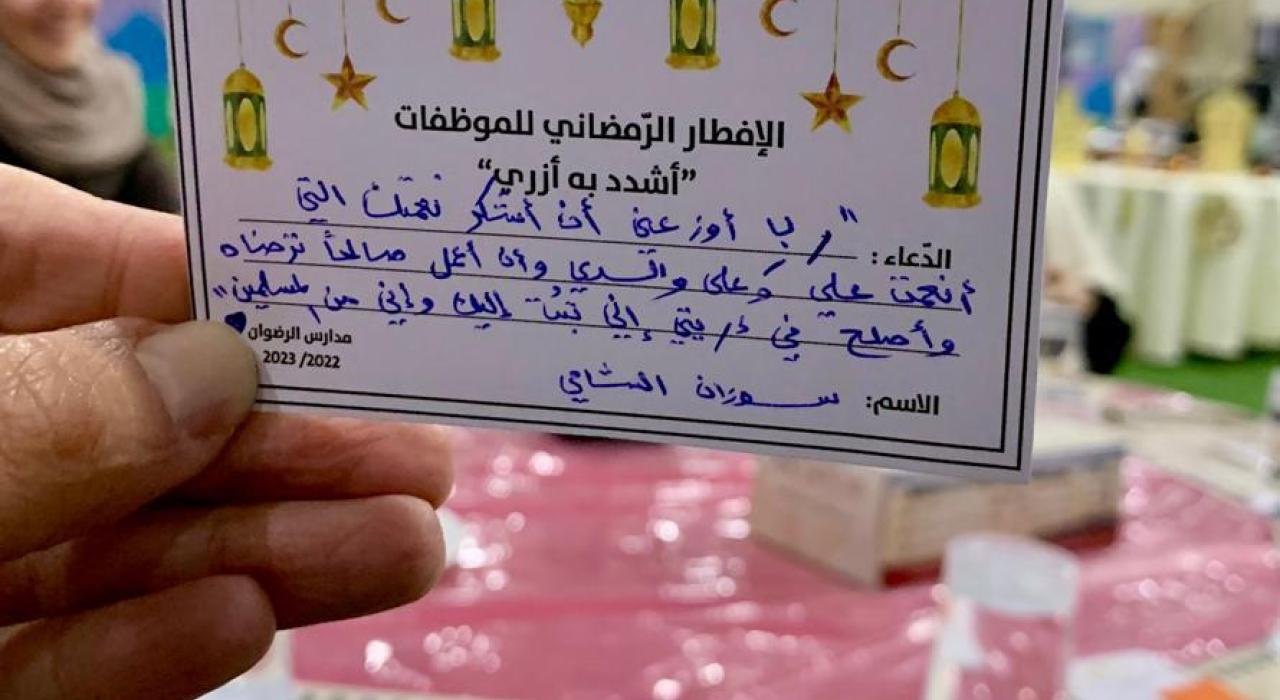 الإفطار الرّمضاني للموظفات
”أشدد به أزري“
الدّعاء: "رب أوزعني أن أشكر نعمتك التي
أنعمت علي وعلى والدي وأن أعمل صالحاً ترضاه
وأصلح في ذريتي إني تبتُ إليك وإني من المسلمين"
مدارس الرضوان
2023/2022
الاسم: سوزان الشامي